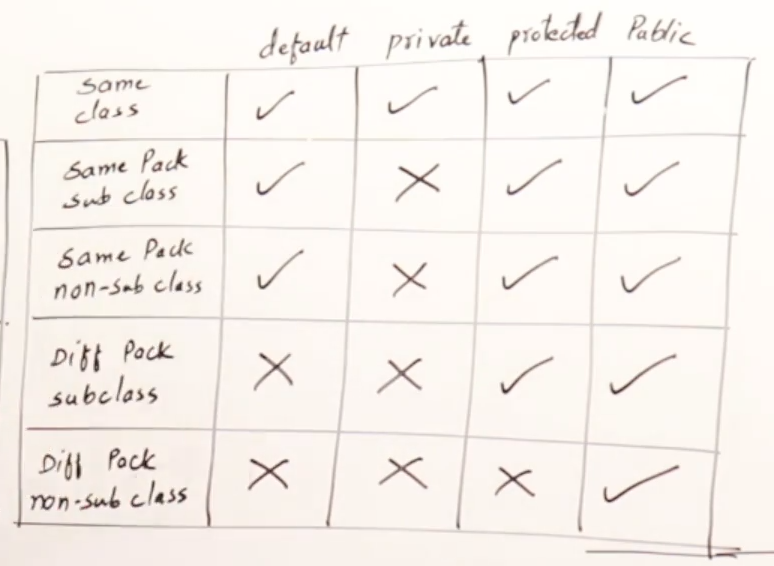 default private protected Public
Same
class ✓ ✓ ✓ ✓
Same Pack
sub class ✓ ✗ ✓ ✓
Same Pack
non-sub class ✓ ✗ ✓ ✓
Diff Pack
subclass ✗ ✗ ✓ ✓
Diff Pack
non-sub class ✗ ✗ ✗ ✓